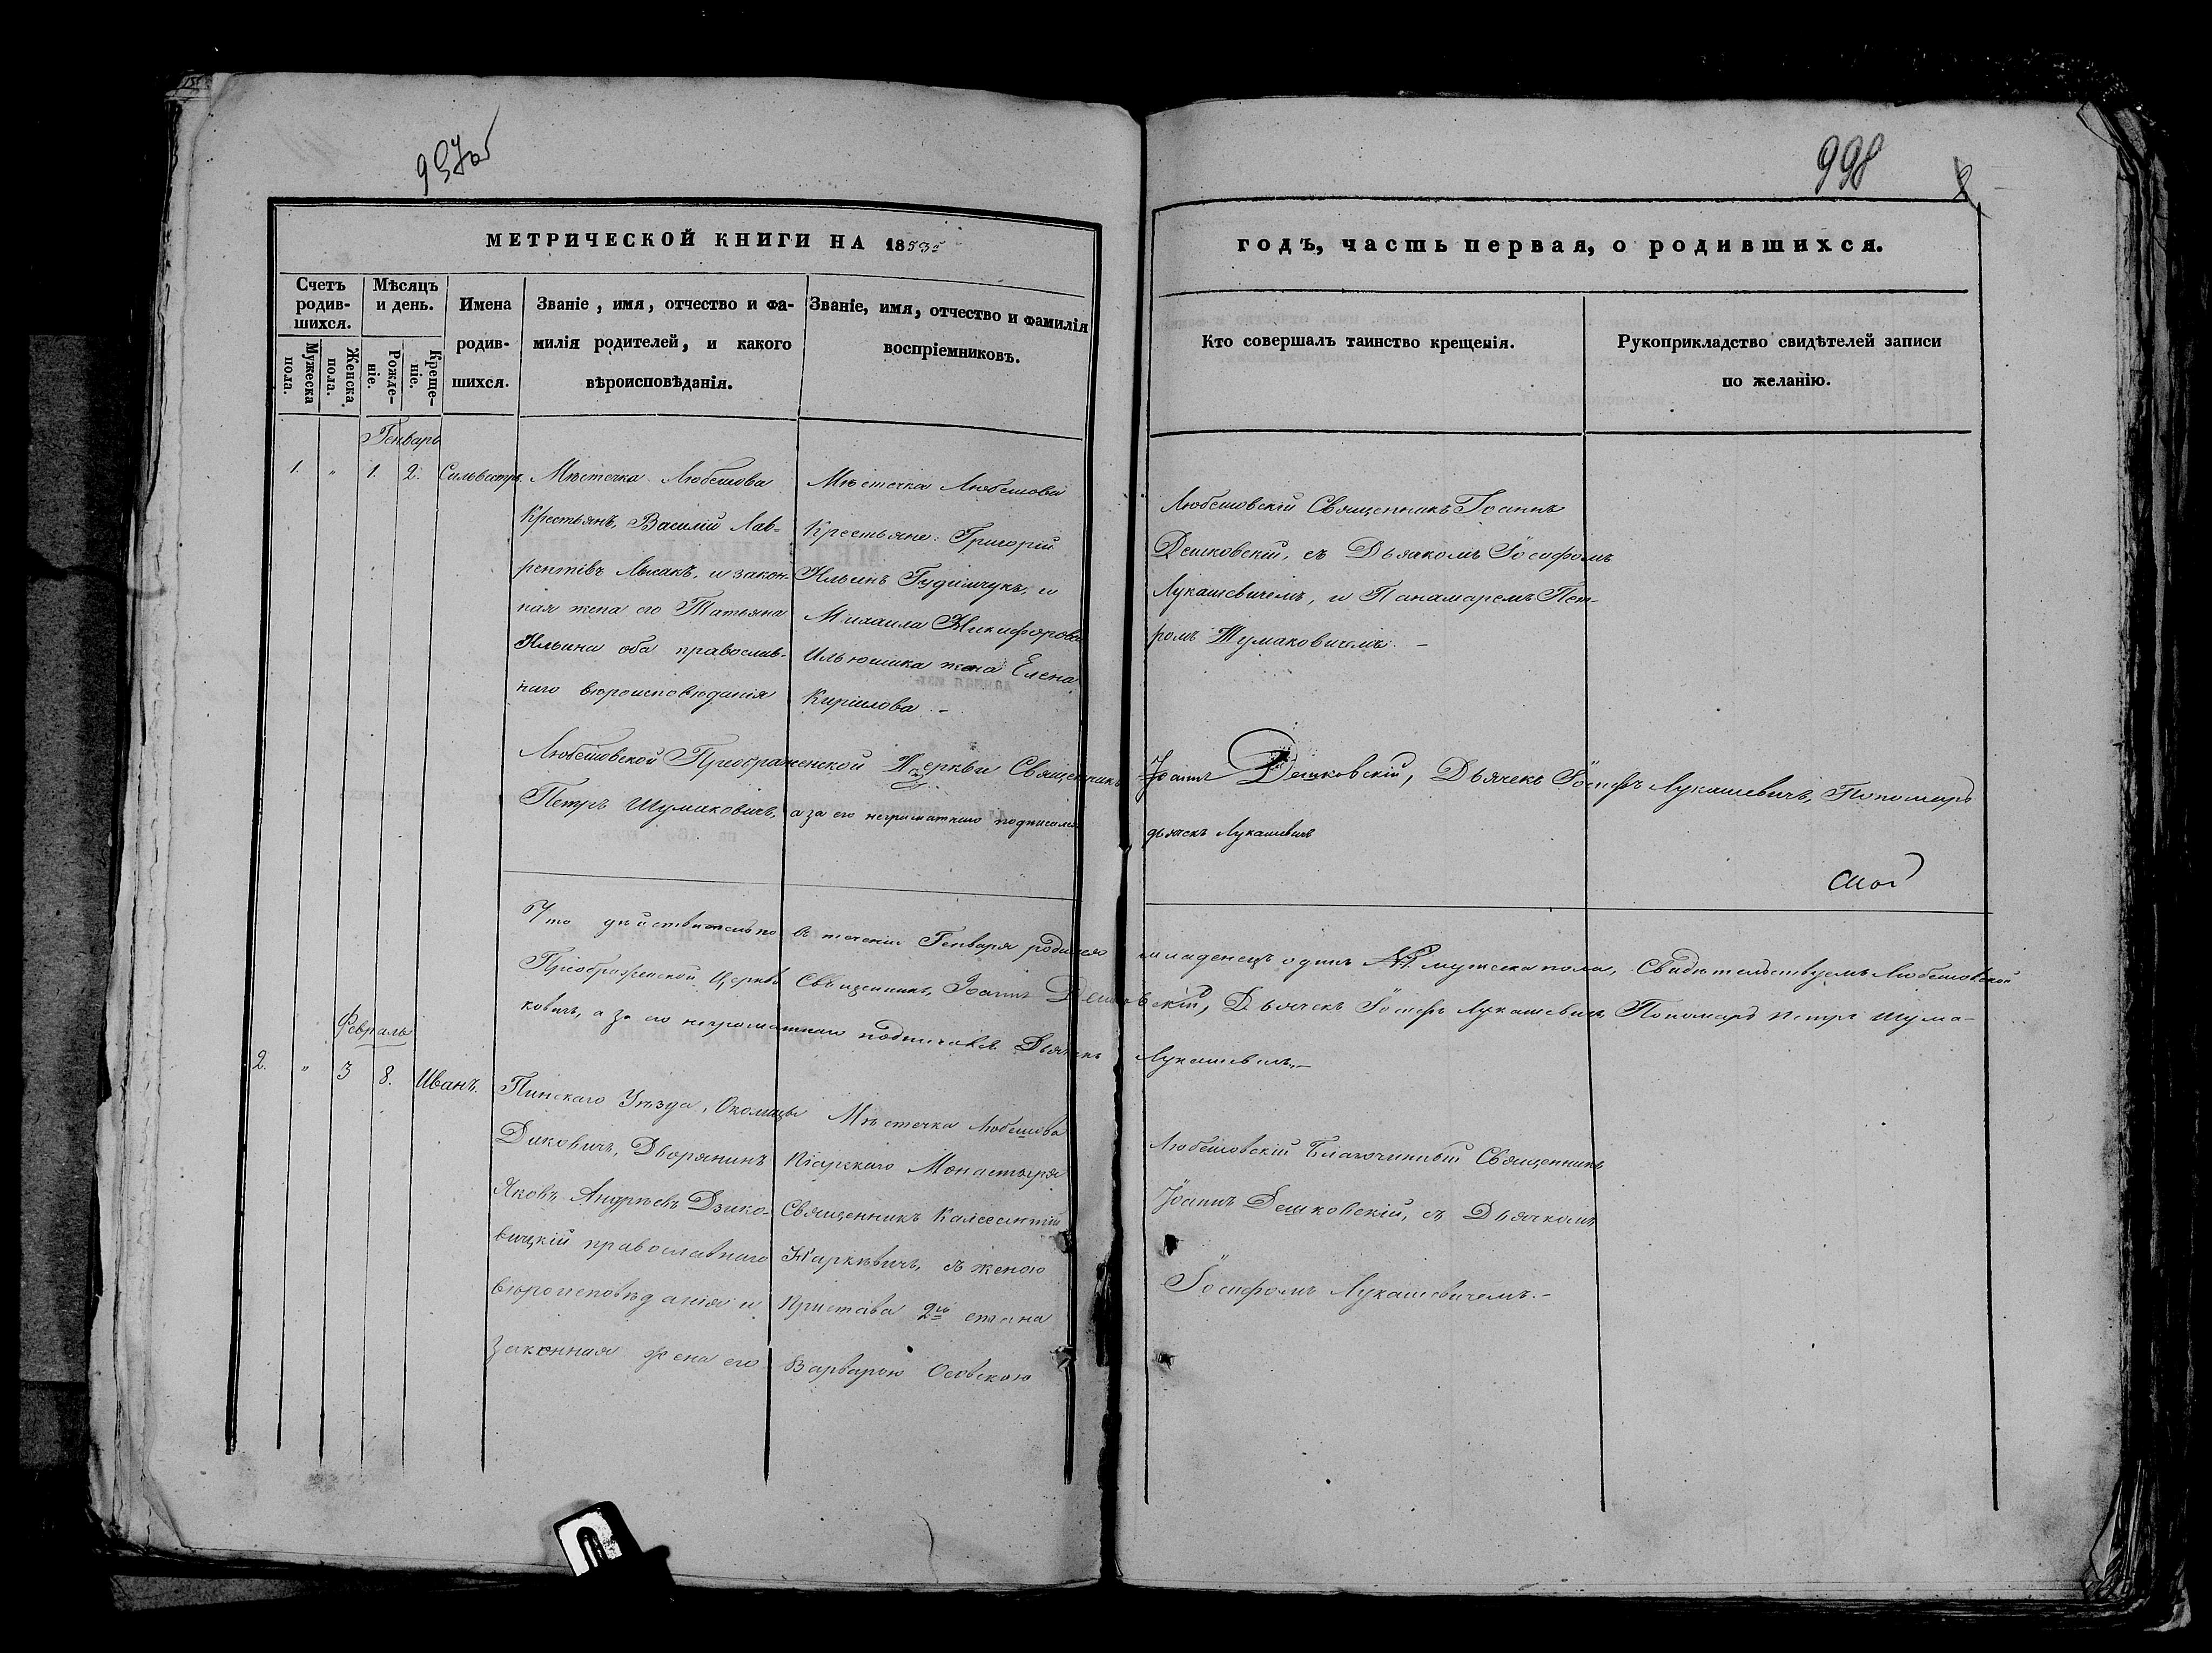 998
МЕТРИЧЕСКОЙ КНИГИ НА 1853
годъ, часть первая, о родившихся.
Счетъ родив-шихся.
Мужеска пола.
Женска пола.
Мѣсяцъ и день.
Рожде-ніе.
Креще-ніе.
Имена родив-шихся.
Званіе, имя, отчество и фа-
милія родителей, и какого
вѣроисповѣданія.
Званіе, имя, отчество и фамилія
воспріемниковъ.
Кто совершалъ таинство крещенія.
Рукоприкладство свидѣтелей записи
по желанію.
Генварь
1. " 1. 2. Сильвестръ.
Мѣстечка Любешова
Крестьянъ, Василій Лав-
рентіевъ Лысакъ, и закон-
ная жена его Татьяна
Ильина оба православ-
наго вѣроисповѣданія
Мѣстечка Любешова
Крестьяне: Григорій
Ильинъ и
Михаила Никифорова
Ильюшика жена Елена
Кирилова. -
Любешовскій Священникъ Іоаннъ
Дешковскій, съ Дьячкомъ Іосифомъ
Лукашевичемъ, и Панамаремъ Пет-
ромъ Шумаковичемъ. -
Любешовской Преображенской Церкви Священникъ Іоаннъ Дешковскій, Дьячекъ Іосифъ Лукашевичъ, Пономарь
Петръ Шумаковичъ, а за его неграматнаго подписался дьячекъ Лукашевичъ
Что дѣйствительно въ теченіи Генваря родился младенецъ одинъ мужеска пола, Свидѣтельствуемъ Любешовской
Преображенской Церкви Священникъ, Іоаннъ Дешковскій, Дьячекъ Іосифъ Лукашевичъ, Пономарь Петръ Шума-
ковичъ, а за его неграматнаго подписался Дьячекъ Лукашевичъ. -
Февраль
2. " 3 8. Иванъ.
Пинскаго Уѣзда, Околицы
Диковичъ, Дворянинъ
Яковъ Андреевъ Дзико-
вицкій православнаго
вѣроисповѣданія и
законная жена его
Мѣстечка Любешова
Піарскаго Монастыря
Священникъ
съ женою
Пристава 2го стана
Варварою Осовскою
Любешовскій Благочинный Священникъ
Іоаннъ Дешковскій, съ Дьячкомъ
Іосифомъ Лукашевичемъ. -